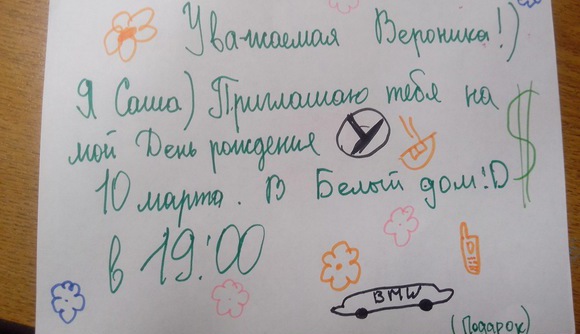 Уважаемая Вероника!)
Я Саша) Приглашаю тебя на
мой День рождения
10 марта. В Белый дом!:D
в 19:00
BMW
(Подарок)